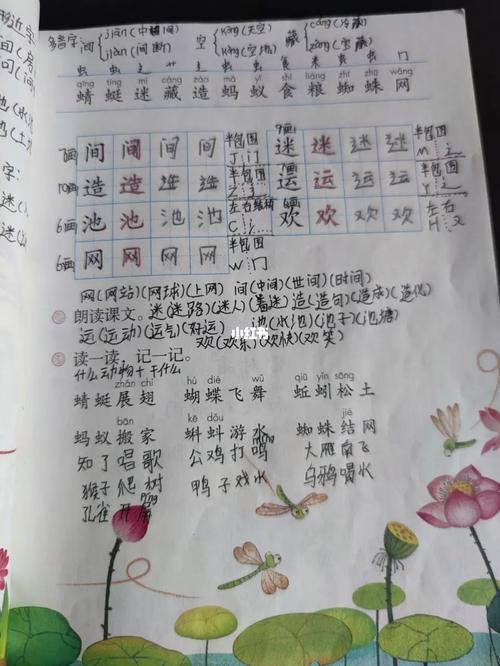 形近字
多音字:间 jiān(中间) jiàn(间断) 空 kōng(天空) kòng(空地) 藏 cáng(冷藏) zàng(宝藏)
虫 虫 辶 艹 辶 虫 虫 食 米 虫 虫 冂
qīng tíng mí cáng zào mǎ yǐ shí liáng zhī zhū wǎng
蜻 蜓 迷 藏 造 蚂 蚁 食 粮 蜘 蛛 网
7画 间 间 间 间 半包围 J 门 9画 迷 迷 迷 迷 半包围 M 辶
10画 造 造 造 造 半包围 Z 辶 7画 运 运 运 运 半包围 Y 辶
6画 池 池 池 池 左右结构 C 氵 6画 欢 欢 欢 欢 左右 H 又
6画 网 网 网 网 半包围 W 冂
网(网站)(网球)(上网) 间(中间)(世间)(时间)
朗读课文。迷(迷路)(迷人)(着迷) 造(造句)(造成)(造化)
运(运动)(运气)(好运) 池(水池)(池子)(池塘)
欢(欢乐)(欢快)(欢笑)
读一读,记一记。
什么动物+干什么
zhǎn chì hú dié wǔ qiū yǐn sōng
蜻蜓展翅 蝴蝶飞舞 蚯蚓松土
bān kē dǒu jié
蚂蚁搬家 蝌蚪游水 蜘蛛结网
知了唱歌 公鸡打鸣 míng 大雁南飞
猴子爬树 鸭子戏水 乌鸦喝水
孔雀开屏 píng
小红书